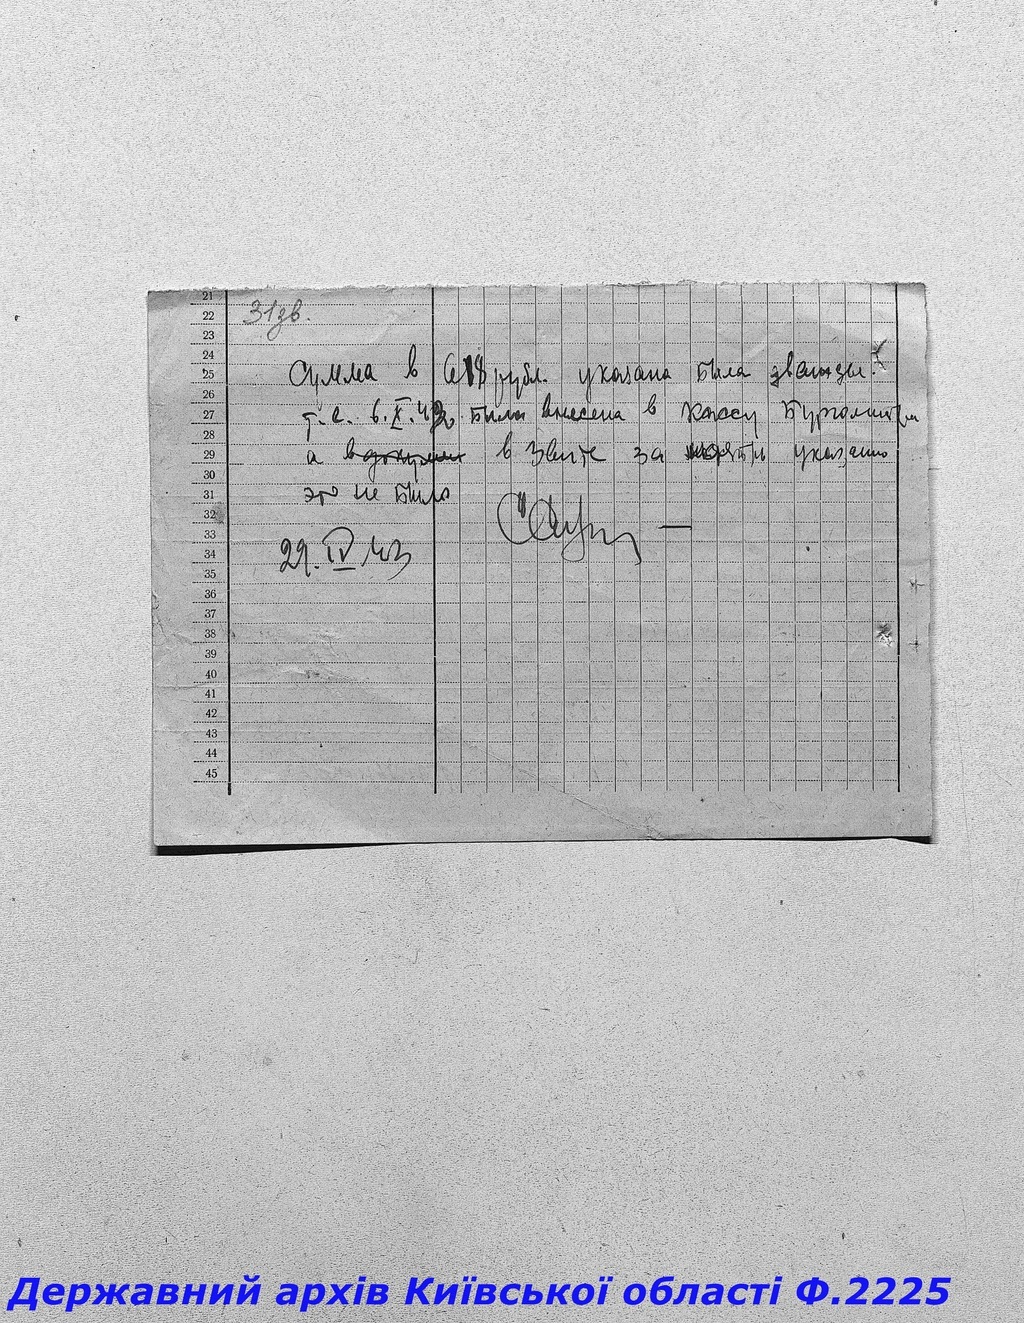 21
22
31зв.
23
24
25 Сумма в 618 рубл. указана была дважды.
26
27 т.е. 6.X.42 были внесена в кассу
28
29 а в за указано
30
31 это не было
32
33
34 29.IV.43
35
36
37
38
39
40
41
42
43
44
45
Державний архів Київської області Ф.2225